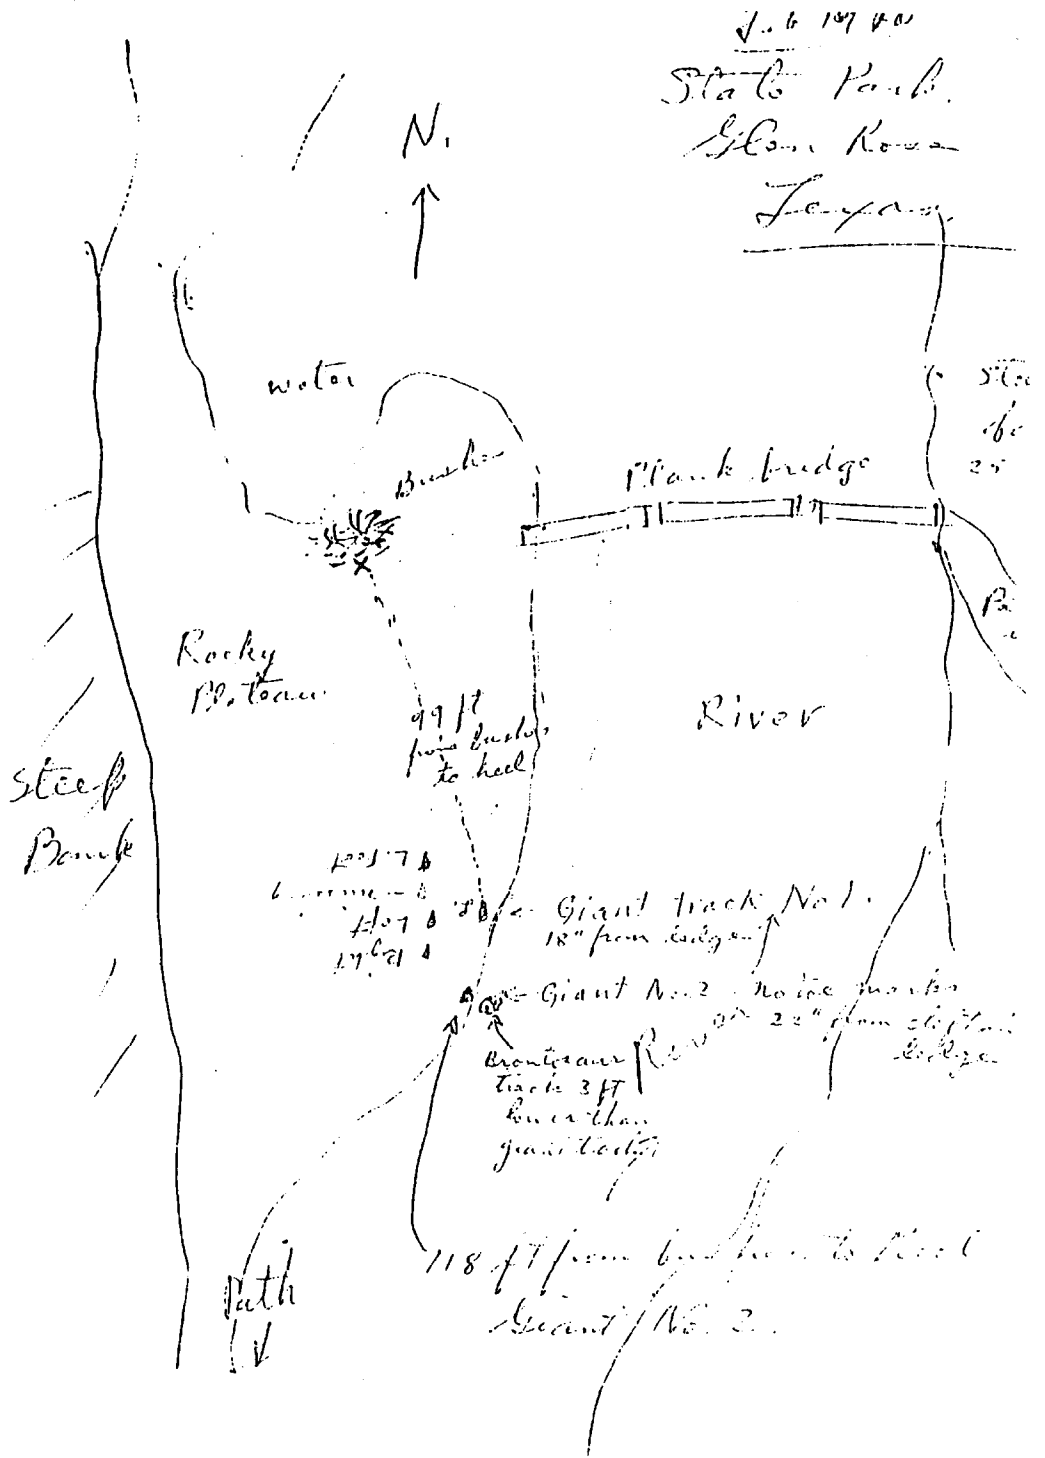 State Park.
Glen Rose
Texas
N.
↑
water
Bushes
Plank bridge
25
Rocky
Plateau
99 ft
from bushes
to heel
River
Steep
Bank
Left
Left
Right
R.
Giant track No 1.
18" from ledge
Giant No. 2 no toe marks
22" from
ledge
Brontosaur
track 3 ft
lower than
giant tracks
River
118 ft from bushes to heel
Giant No. 2.
Path